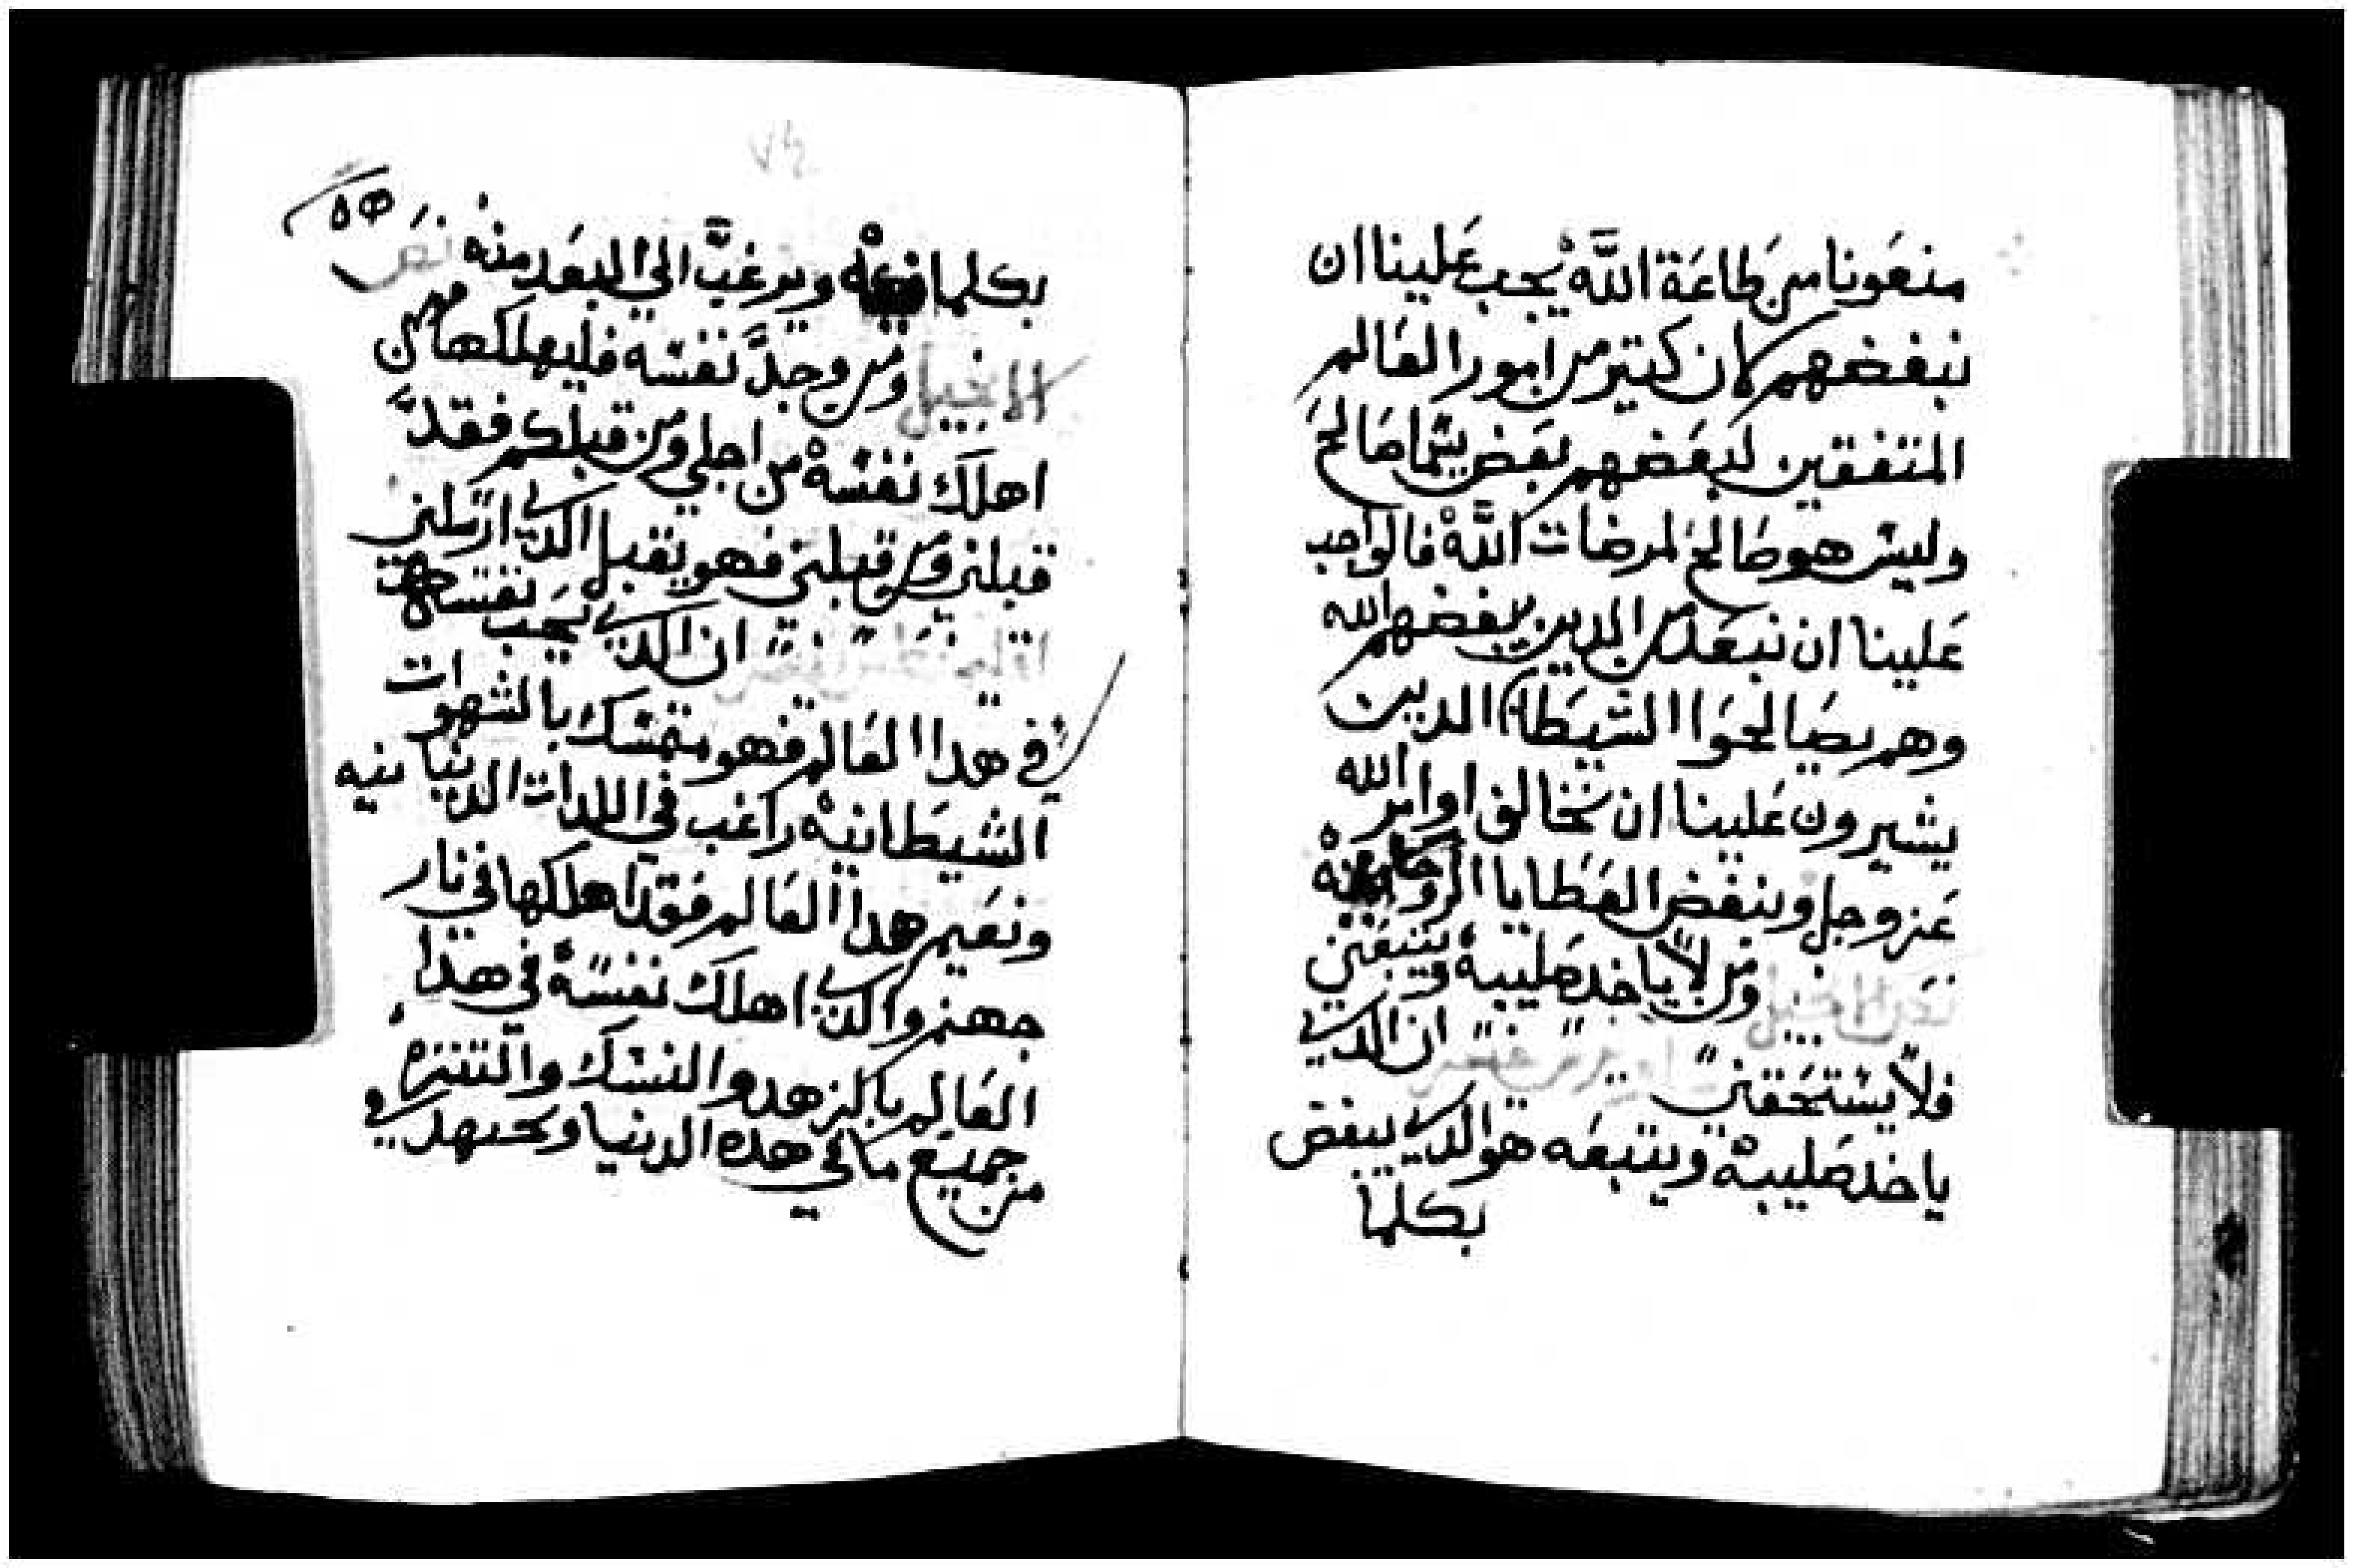 منعونا من طاعة الله يجب علينا ان
نبغضهم لان كتير من امور العالم
المتفقين لبعضهم بعض يتماصالح
وليس هو صالح لمرضات الله فالواجب
علينا ان نبعد من الدين يبغضهم الله
وهم يصالحوا الشيطان الدين
يشيرون علينا ان نخالف اوامر الله
عز وجل ونبغض العطايا الروحانيه
نص الانجيل ومن لا ياخد صليبه ويتبعني
فلا يستحقني ان الدي
ياخد صليبه ويتبعه هو الدي يبغض
بكلما
بكلما ويرغب الى البعد منه نص
الانجيل ومن وجد نفسه فليهلكها ومن
اهلك نفسه من اجلي ومن قبلكم فقد
قبلني ومن قبلني فهو يقبل الدي ارسلني
ان الدي يحب نفسه
في هدا العالم فهو متمسك بالشهوات
الشيطانيه راغب في اللدات الدنيانيه
ونعيم هدا العالم فقد اهلكها في نار
جهنم والدي اهلك نفسه في هدا
العالم بالزهد والنسك والتنزه
من جميع ما في هده الدنيا ويجتهد في